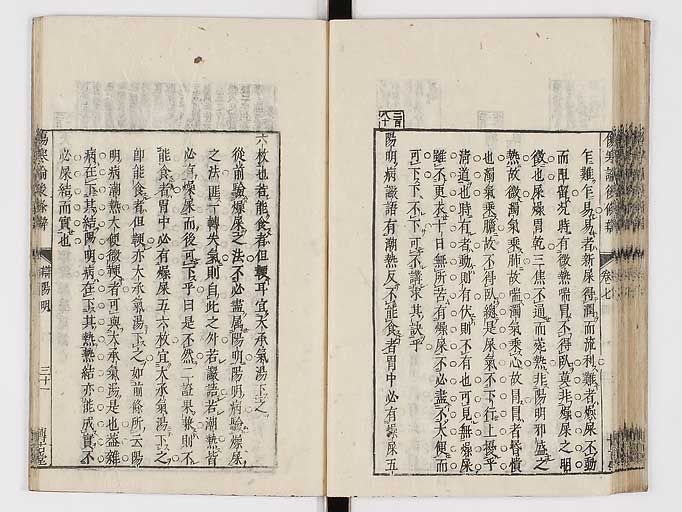 傷寒論後條辨
卷七
乍難乍易易者新屎得潤而流利難者燥屎不動
而阻留兂時有微熱喘冒不得臥莫非燥屎之明
徵也屎燥胃乾三焦不通而菀熱非陽明邪盛之
熱故微濁氣乘肺故喘濁氣乘心故冒冒者昏憒
也濁氣乘臟故不得臥總是屎氣不下行上擾乎
清道也時有者動則有伏則不有也可見無燥屎
雖不更衣十日無所苦有燥屎不必盡不大便而
可下下不下可不講求其訣乎
二百八十
陽明病譫語有潮熱反不能食者胃中必有燥屎五
六枚也若能食者但鞕耳宜大承氣湯下之
從前驗燥屎之法不必盡属陽明陽明病驗燥屎
之法匪丁轉失氣則自此之外若譫語若潮熱皆
必有燥屎而後可下乎曰是不然二證果兼則不
能食者胃中必有燥屎五六枚宜大承氣湯下之
卽能食者但鞕亦大承氣湯下之如前條所云陽
明病潮熱大便微鞕者可與大承氣湯是也蓋雜
病在下其結陽明病在下其熱熱結亦能成實不
必屎結而實也
傷寒論後條辨
辨陽明
三十一
博古堂